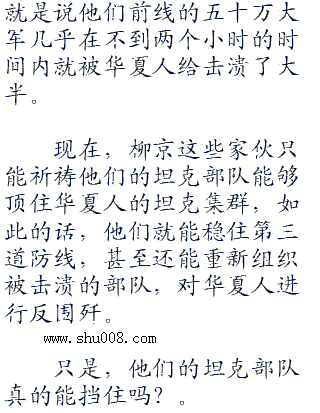 就是说他们前线的五十万大
军几乎在不到两个小时的时
间内就被华夏人给击溃了大
半。
现在，柳京这些家伙只
能祈祷他们的坦克部队能够
顶住华夏人的坦克集群，如
此的话，他们就能稳住第三
道防线，甚至还能重新组织
被击溃的部队，对华夏人进
行反围歼。
www.shu008.com
只是，他们的坦克部队
真的能挡住吗？。